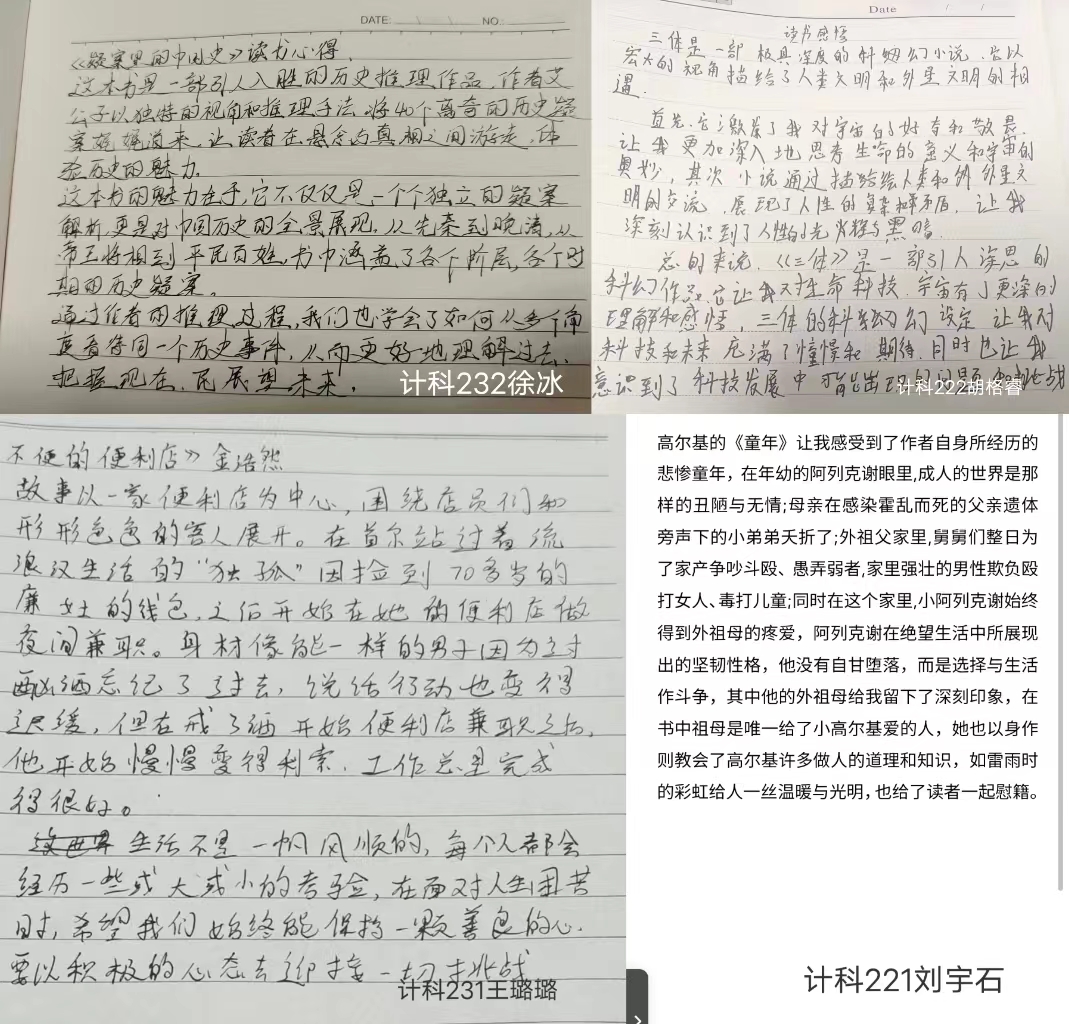 DATE: NO:
《疑案里的中国史》读书心得
这本书是一部引人入胜的历史推理作品,作者艾
公子以独特的视角和推理手法,将40个离奇的历史疑
案娓娓道来,让读者在悬念与真相之间游走,体
验历史的魅力。
这本书的魅力在于,它不仅仅是一个个独立的疑案
解析,更是对中国历史的全景展现。从先秦到晚清,从
帝王将相到平民百姓,书中涵盖了各个阶层,各个时
期的历史疑案。
通过作者的推理过程,我们也学会了如何从多个角
度看待同一个历史事件,从而更好地理解过去、
把握现在、展望未来。
计科232徐冰
Date
读书感悟
三体是一部极具深度的科幻小说,它以
宏大的视角描绘了人类文明和外星文明的相
遇。
首先,它激发了我对宇宙的好奇和敬畏,
让我更加深入地思考生命的意义和宇宙的
奥妙,其次,小说通过描绘人类和外星文
明的交流,展现了人性的复杂和矛盾,让我
深刻认识到了人性的光辉与黑暗。
总的来说,《三体》是一部引人深思的
科幻作品,它让我对生命科技、宇宙有了更深的
理解和感悟,三体的科幻设定让我对
科技和未来充满了憧憬和期待,同时也让我
意识到了科技发展中可能出现的问题和挑战
计科222胡格睿
不便的便利店》金浩然
故事以一家便利店为中心,围绕店员们和
形形色色的客人展开。在首尔站过着流
浪汉生活的“独孤”因捡到70多岁的
廉女士的钱包,之后开始在她的便利店做
夜间兼职。身材像熊一样的男子因为过
酗酒忘记了过去,说话行动也变得
迟缓,但在戒了酒开始便利店兼职之后,
他开始慢慢变得利索,工作总是完成
得很好。
生活不是一帆风顺的,每个人都会
经历一些或大或小的考验,在面对人生困苦
时,希望我们始终能保持一颗善良的心.
要以积极的心态去迎接一切挑战
计科231王璐璐
高尔基的《童年》让我感受到了作者自身所经历的
悲惨童年,在年幼的阿列克谢眼里,成人的世界是那
样的丑陋与无情;母亲在感染霍乱而死的父亲遗体
旁声下的小弟弟夭折了;外祖父家里,舅舅们整日为
了家产争吵斗殴、愚弄弱者,家里强壮的男性欺负殴
打女人、毒打儿童;同时在这个家里,小阿列克谢始终
得到外祖母的疼爱,阿列克谢在绝望生活中所展现
出的坚韧性格,他没有自甘堕落,而是选择与生活
作斗争,其中他的外祖母给我留下了深刻印象,在
书中祖母是唯一给了小高尔基爱的人,她也以身作
则教会了高尔基许多做人的道理和知识,如雷雨时
的彩虹给人一丝温暖与光明,也给了读者一起慰籍。
计科221刘宇石